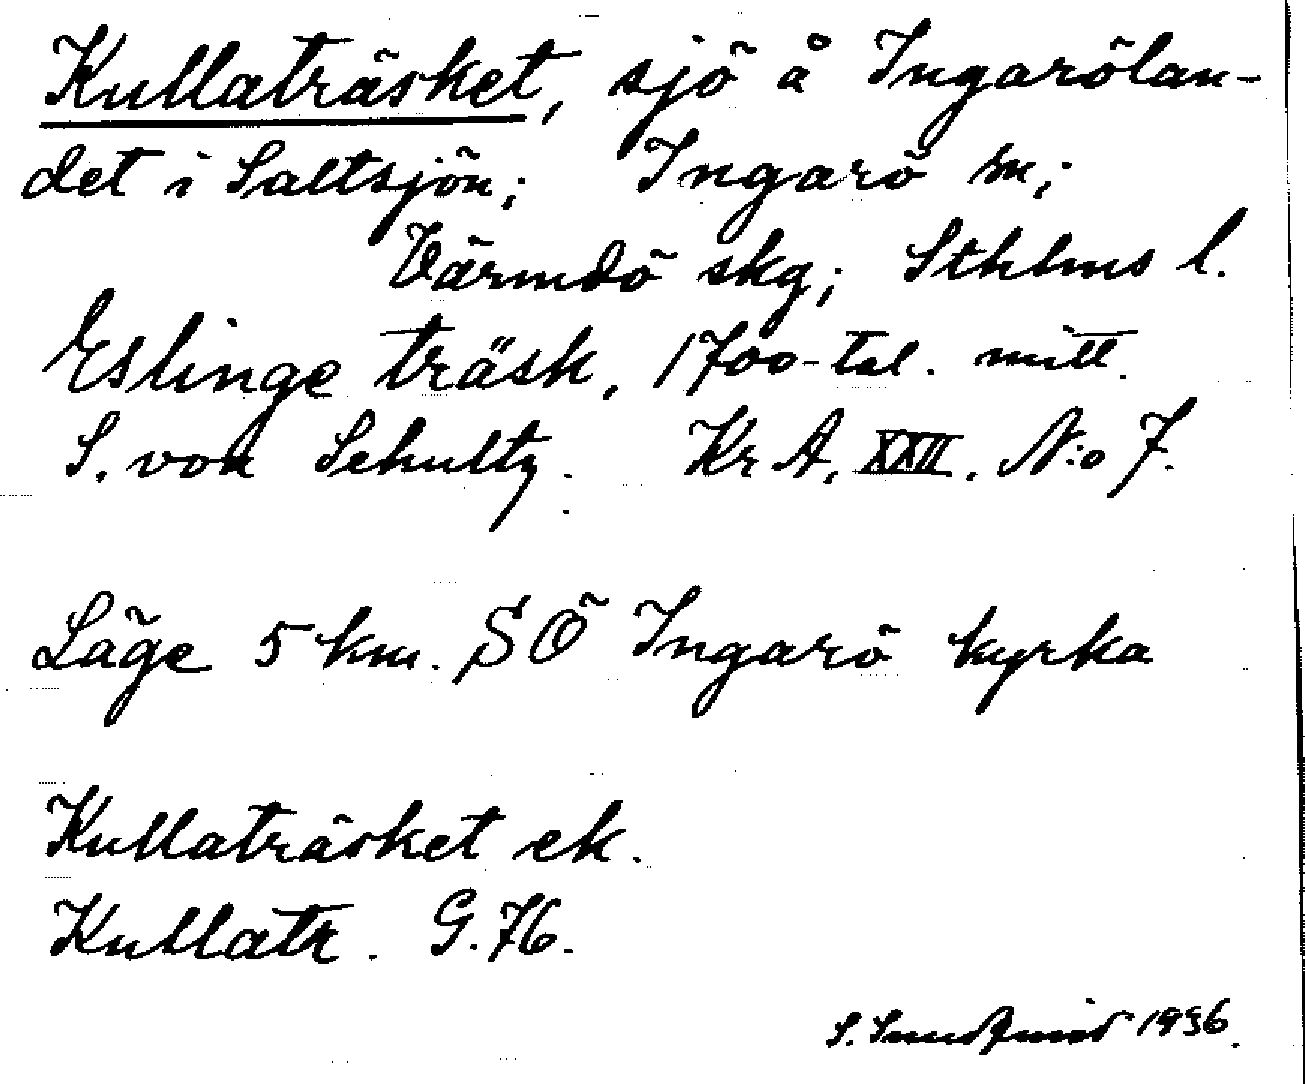 Kullaträsket, sjö å Ingarölan-
det i Saltsjön; Ingarö sn;
Värmdö skg; Sthlms l.
Eslinge träsk, 1700-tal. mitt.
S. von Schultz. Kr A. XXII. N:o 7.
Läge 5 km. SÖ Ingarö kyrka
Kullaträsket ek.
Kullatr. G. 76.
S. Sundqvist 1936.